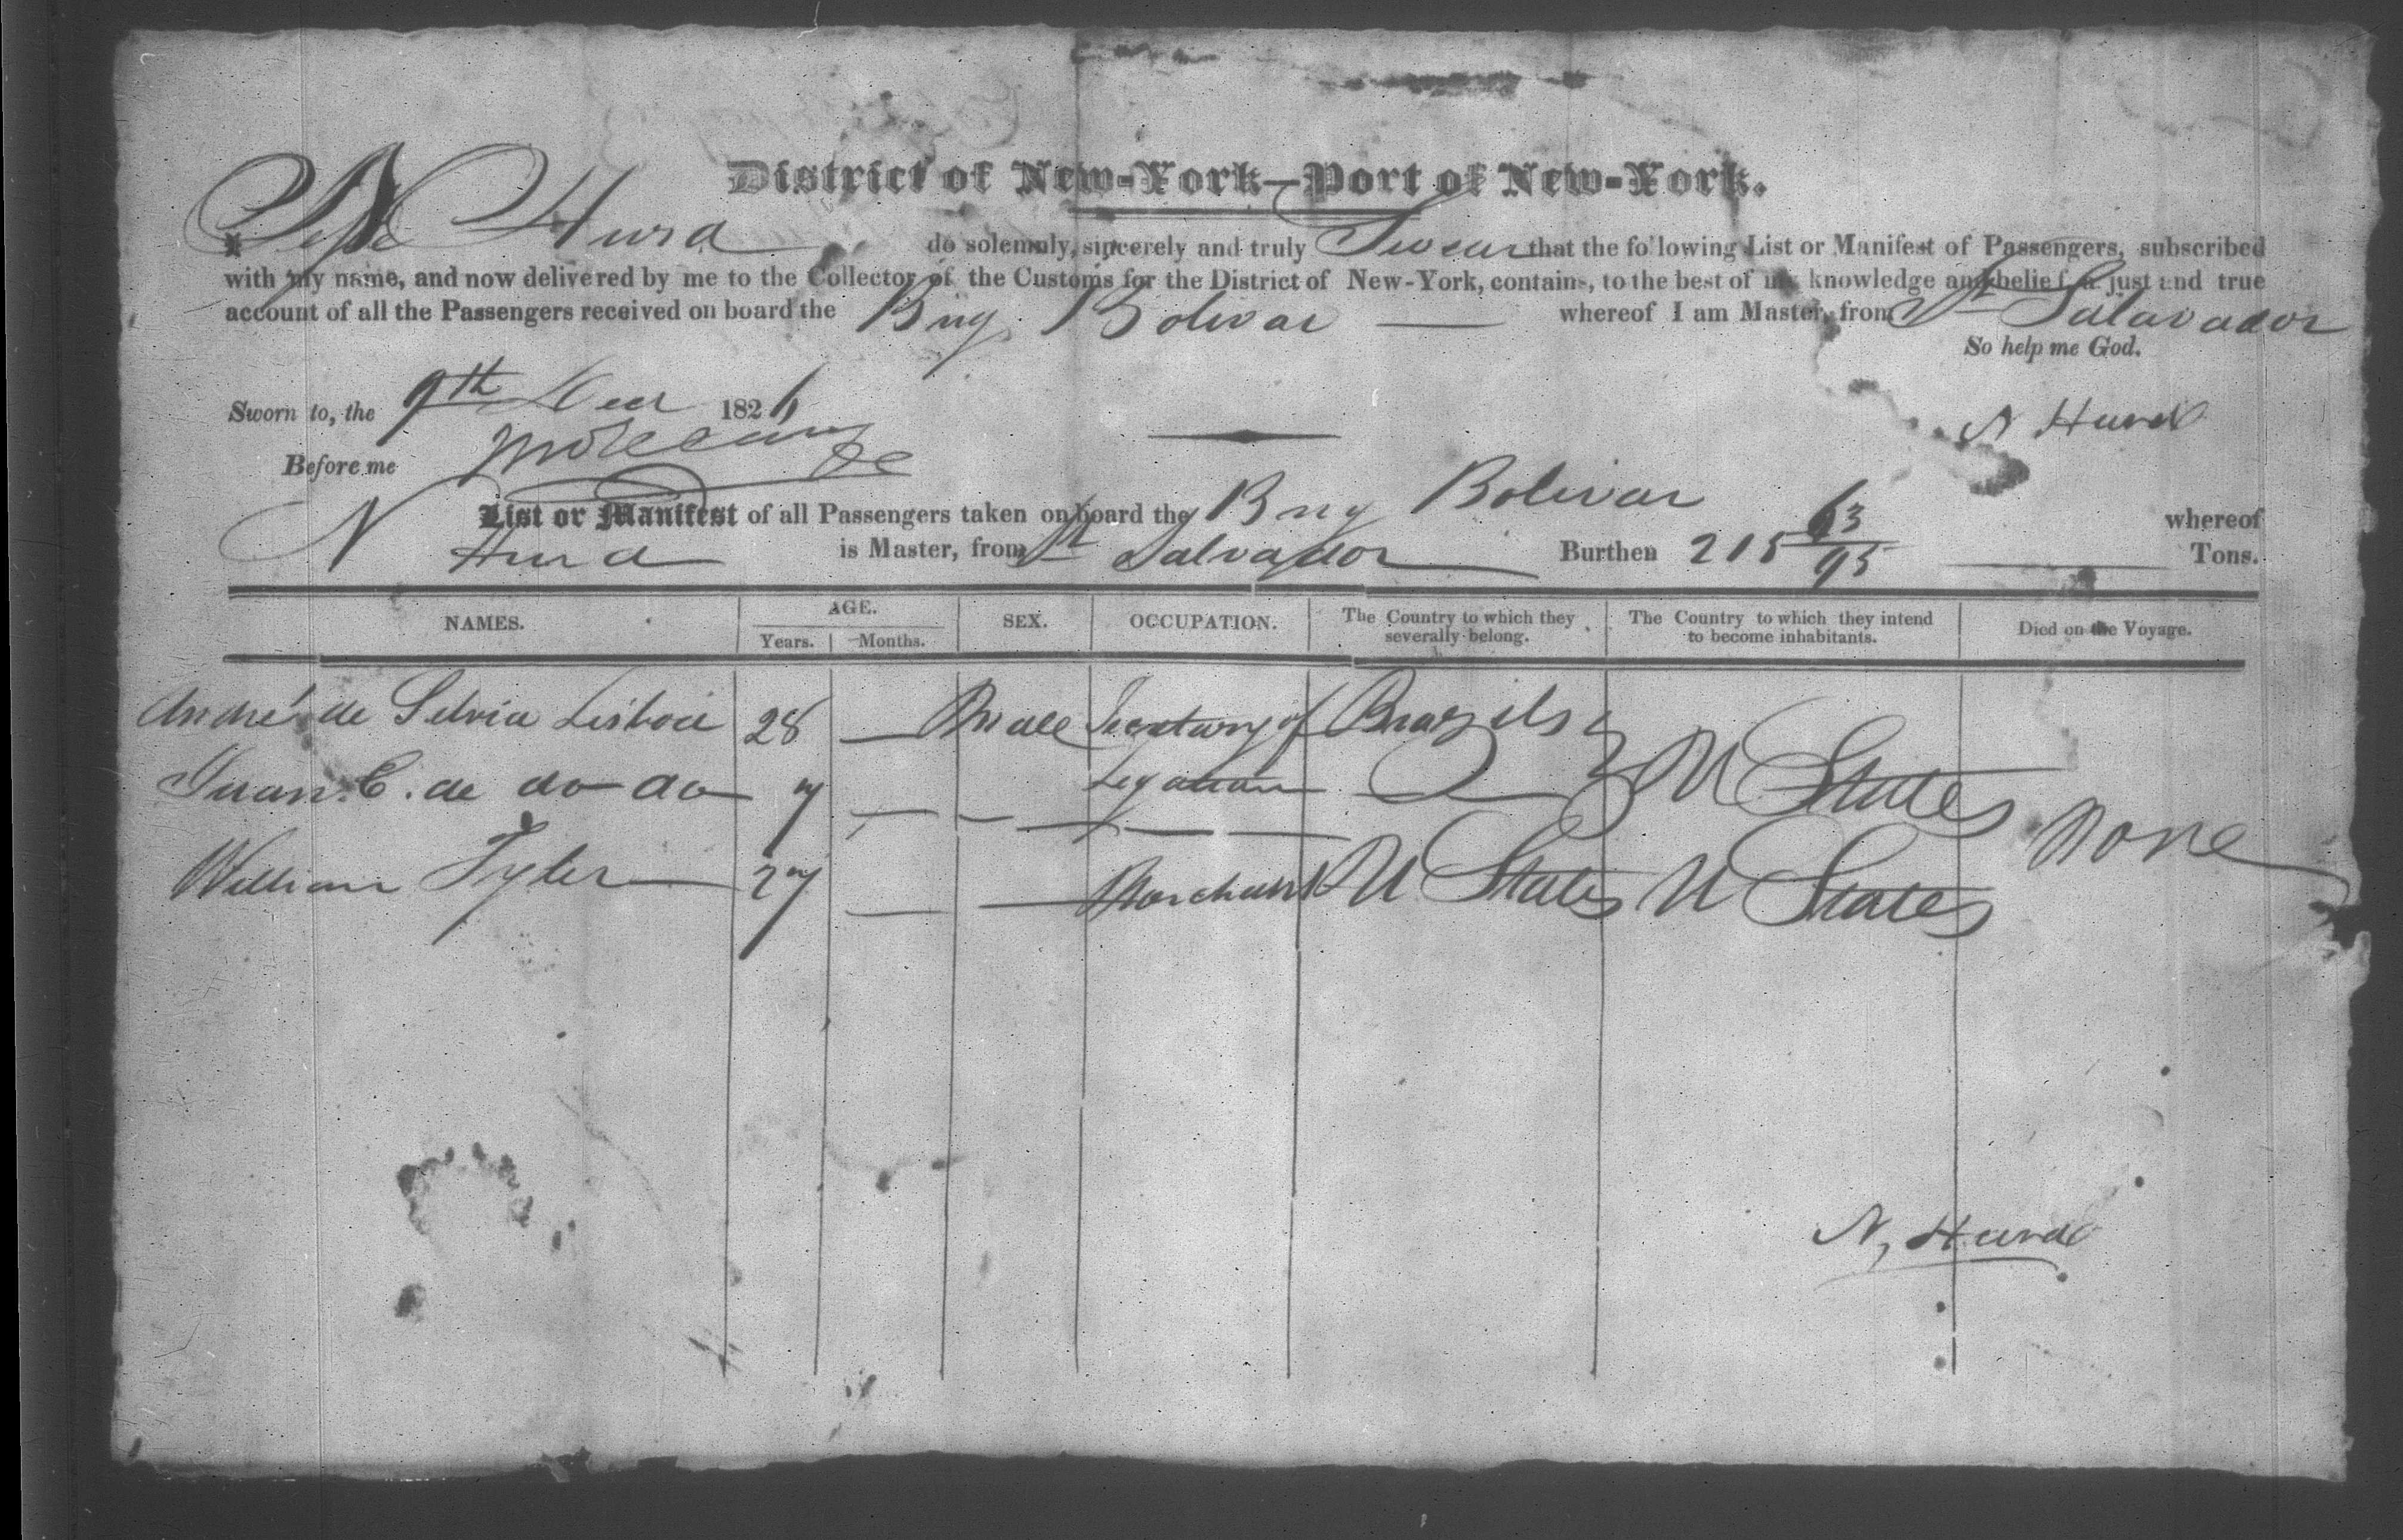 District of New-York—Port of New-York.
N Hurd do solemnly, sincerely and truly Swear that the following List or Manifest of Passengers, subscribed
with my name, and now delivered by me to the Collector of the Customs for the District of New-York, contains, to the best of my knowledge and belief, a just and true
account of all the Passengers received on board the Brig Bolivar — whereof I am Master, from St Salavador
So help me God.
Sworn to, the 9th Decr 1826
N Hurd
Before me
List or Manifest of all Passengers taken on board the Brig Bolivar whereof
N Hurd is Master, from St Salvador Burthen 215 63/95 Tons.
NAMES. AGE. SEX. OCCUPATION. The Country to which they severally belong. The Country to which they intend to become inhabitants. Died on the Voyage.
Years. Months.
André de Silvia Lisboa 28 — Male Secretary of Legation Brazils U States None
Juan C. de do do 7 — — —
William Tyler 27 — — Merchant U States U States
N, Hurd